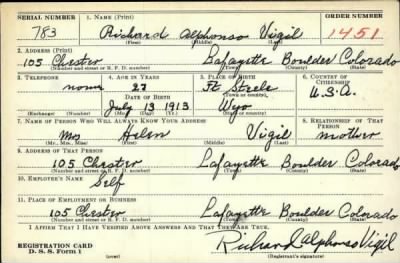 SERIAL NUMBER 1. NAME (Print) ORDER NUMBER
783 Richard Alphonso Vigil 1451
(First) (Middle) (Last)
2. ADDRESS (Print)
105 Chester Lafayette Boulder Colorado
(Number and street or R. F. D. number) (Town) (County) (State)
3. TELEPHONE 4. AGE IN YEARS 5. PLACE OF BIRTH 6. COUNTRY OF CITIZENSHIP
none 27 Ft Steele
DATE OF BIRTH (Town or county) U.S.A.
July 13 1913 Wyo
(Exchange) (Number) (Mo.) (Day) (Yr.) (State or country)
7. NAME OF PERSON WHO WILL ALWAYS KNOW YOUR ADDRESS 8. RELATIONSHIP OF THAT PERSON
Mrs Helen Vigil mother
(Mr., Mrs., Miss) (First) (Middle) (Last)
9. ADDRESS OF THAT PERSON
105 Chester Lafayette Boulder Colorado
(Number and street or R. F. D. number) (Town) (County) (State)
10. EMPLOYER'S NAME
Self
11. PLACE OF EMPLOYMENT OR BUSINESS
105 Chester Lafayette Boulder Colorado
(Number and street or R. F. D. number) (Town) (County) (State)
I AFFIRM THAT I HAVE VERIFIED ABOVE ANSWERS AND THAT THEY ARE TRUE.
REGISTRATION CARD Richard Alphonso Vigil
D. S. S. Form 1 (over) (Registrant's signature)